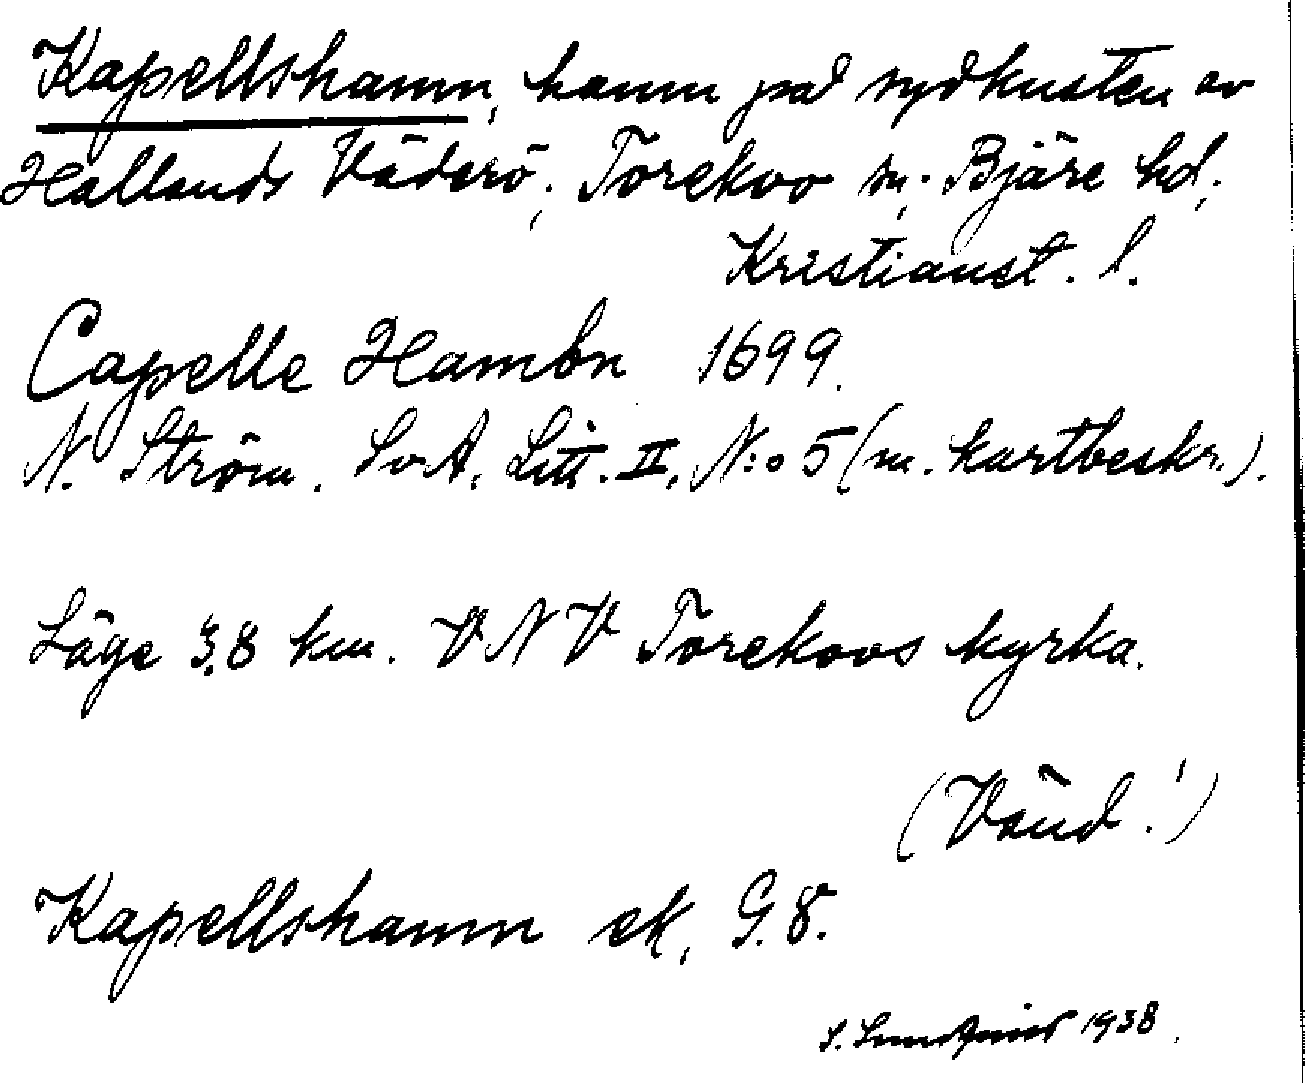 Kapellshamn, hamn på sydkusten av
Hallands Väderö, Torekov sn. Bjäre hd,
Kristianst. l.
Capelle Hambn 1699.
N. Ström. SvA, Litt. II, N:o 5 (m. kartbeskr.).
Läge 3,8 km. VNV Torekovs kyrka.
(Vänd!)
Kapellshamn ek, G. 8.
S. 1938.